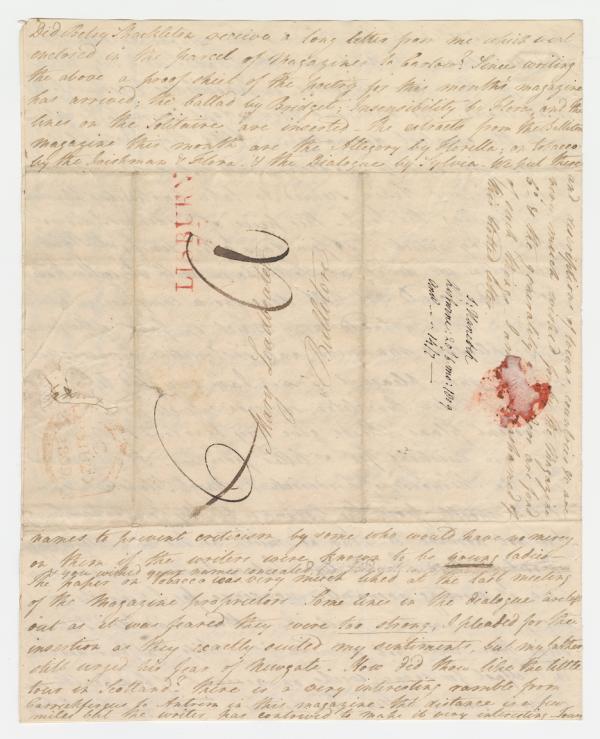 Did Betsy Shackleton receive a long letter from me which went
enclosed in the parcel of Magazines to Carlow? Since writing
the above a proof sheet of the poetry for this month's magazine
has arrived; the ballad by Bridget; Insensibility by Flora, and the
lines on the Solitaire are inserted the extracts from the Ballitore
magazine this month are the Allegory by Florella; on Tobacco
by the Irishman & Flora & the Dialogue by Sylvia. We put these
LISBURN
Mary
Ballitore
and descriptions of towns, countries &c are
now much wished for in the Magazine
the generality of are fond
of such things
this letter
names to prevent criticism by some who would have no mercy
on them if the writers were known to be young ladies
as you wished your names concealed
The paper on Tobacco was very much liked at the last meeting
of the Magazine proprietors Some lines in the dialogue are left
out as it was feared they were too strong, I pleaded for their
insertion as they exactly suited my sentiments, but my father
still urged his fear of Newgate. How did thou like the little
tour in Scotland? there is a very interesting ramble from
Carrickfergus to Antrim in this magazine the distance is a few
miles but the writer has contrived to make it very interesting